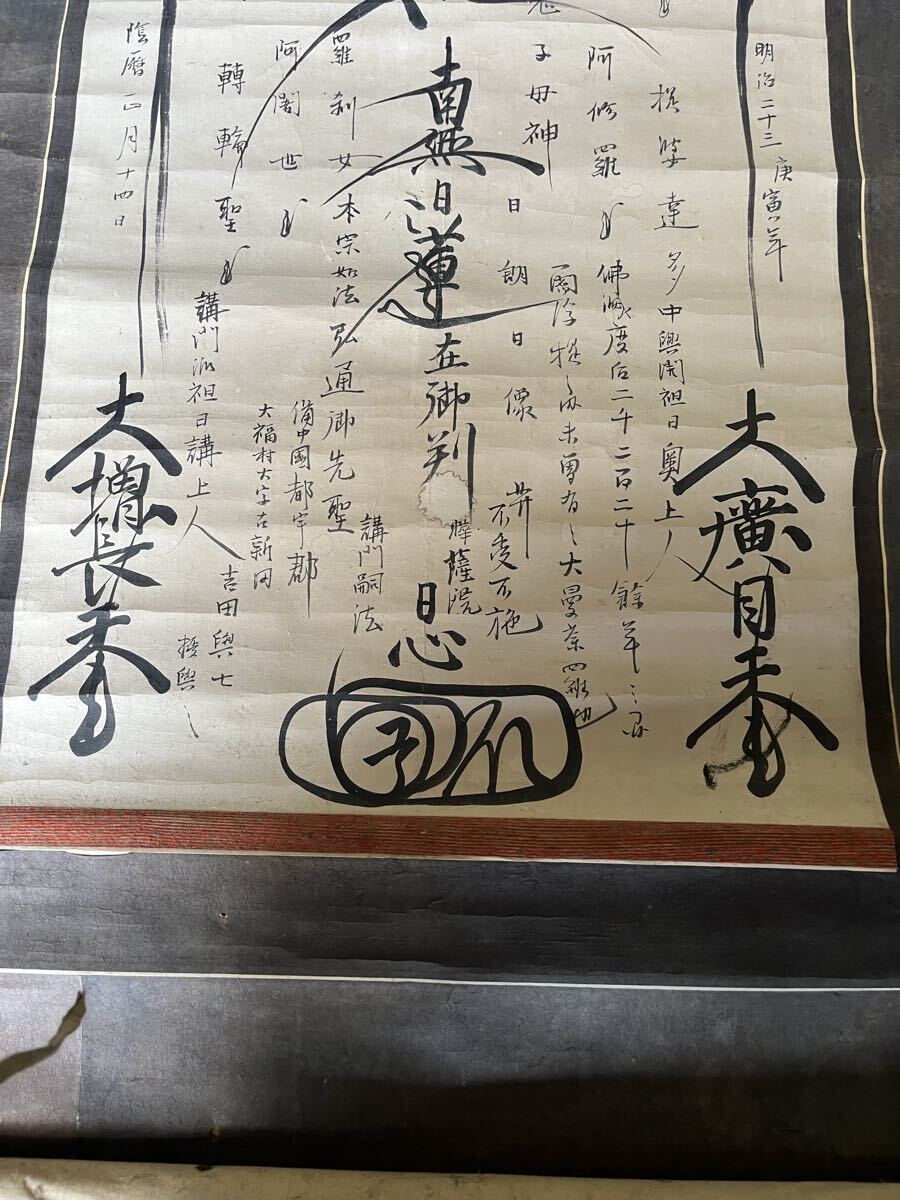 明治二十三庚寅年
大廣目天王
提婆達多
中興開祖日奧上人
阿修羅王
佛滅度后二千二百二十餘年之間
閻浮提之内未曽有之大曼荼羅也
子母神
日朗日像
并不受不施
南無日蓮在御判
薩院
日心
羅刹女
本宗如法弘通御先聖
講門嗣法
阿闍世王
備中國都宇郡
大福村大字古新田
轉輪聖王
講門派祖日講上人
吉田與七
授與之
陰暦正月十四日
大増長天王